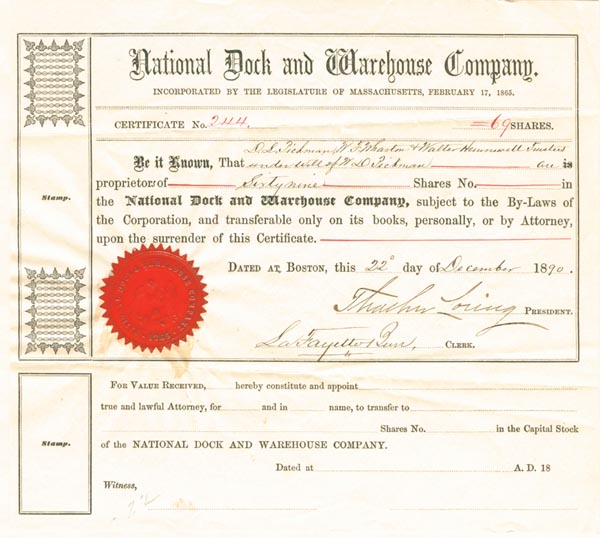 National Dock and Warehouse Company.
INCORPORATED BY THE LEGISLATURE OF MASSACHUSETTS, FEBRUARY 17, 1865.
CERTIFICATE No. 244. 69 SHARES.
D. L. Pickman, W. F. Wharton & Walter Hunnewell Trustees
Be it Known, That under will of W. D. Pickman are is
proprietor of Sixty nine Shares No. in
Stamp.
the National Dock and Warehouse Company, subject to the By-Laws of
the Corporation, and transferable only on its books, personally, or by Attorney,
upon the surrender of this Certificate.
DATED AT BOSTON, this 22d day of December 1890.
Thacher Loring PRESIDENT.
LaFayette CLERK.
FOR VALUE RECEIVED, hereby constitute and appoint
true and lawful Attorney, for and in name, to transfer to
Shares No. in the Capital Stock
Stamp.
of the NATIONAL DOCK AND WAREHOUSE COMPANY.
Dated at A. D. 18
Witness,